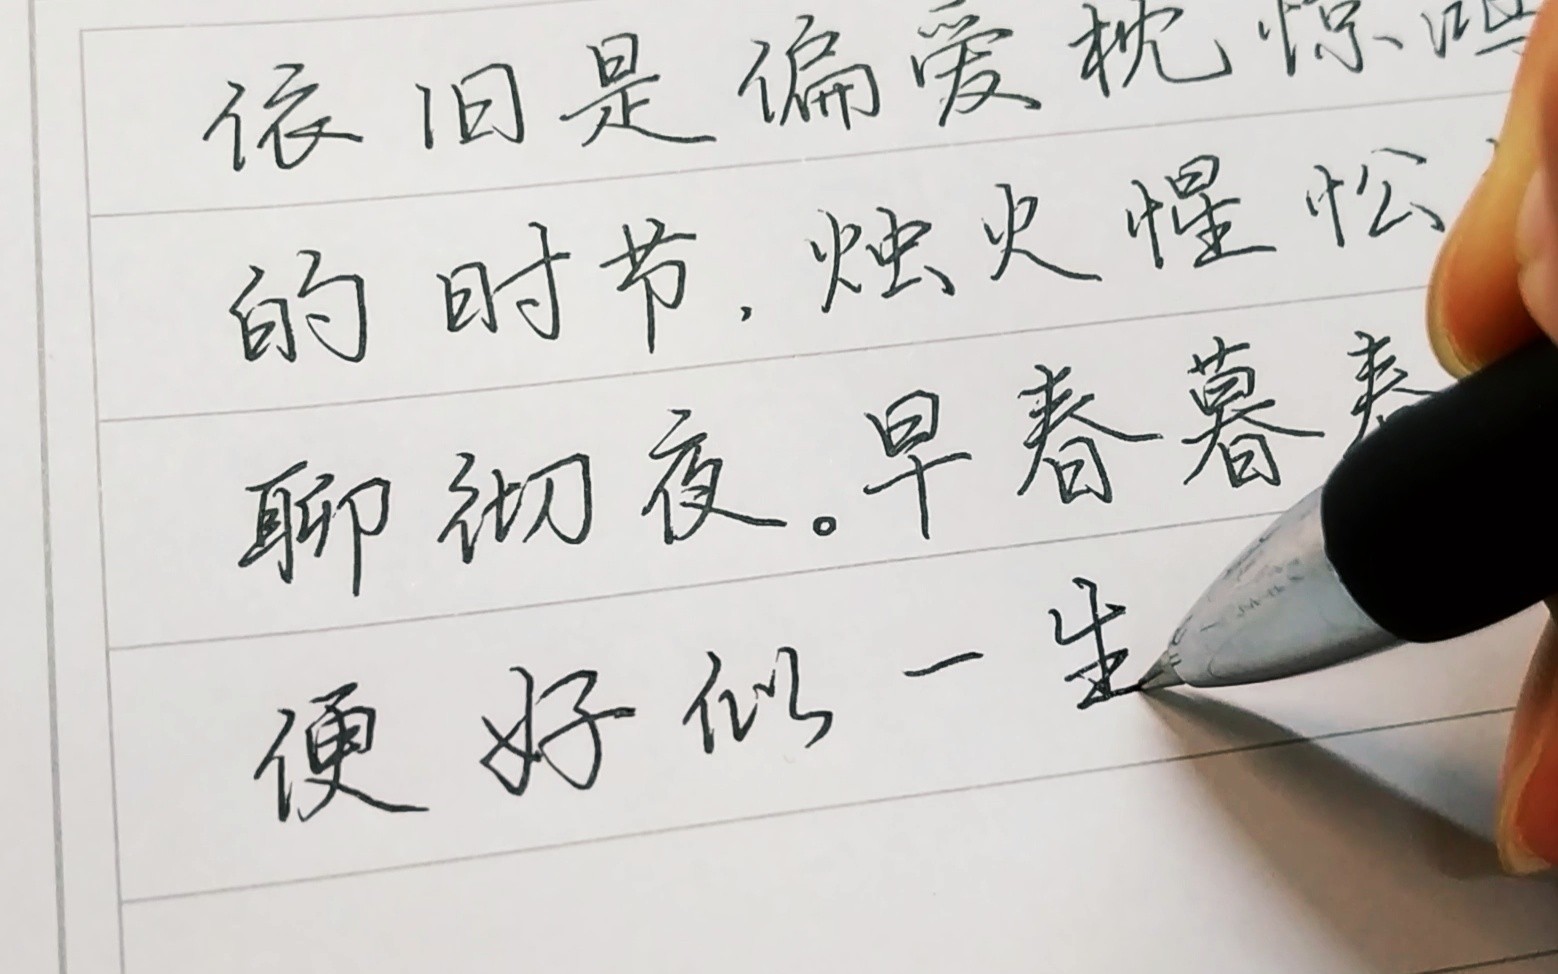 依旧是偏爱枕惊鸿
的时节，烛火惺忪
聊彻夜。早春暮春
便好似一生